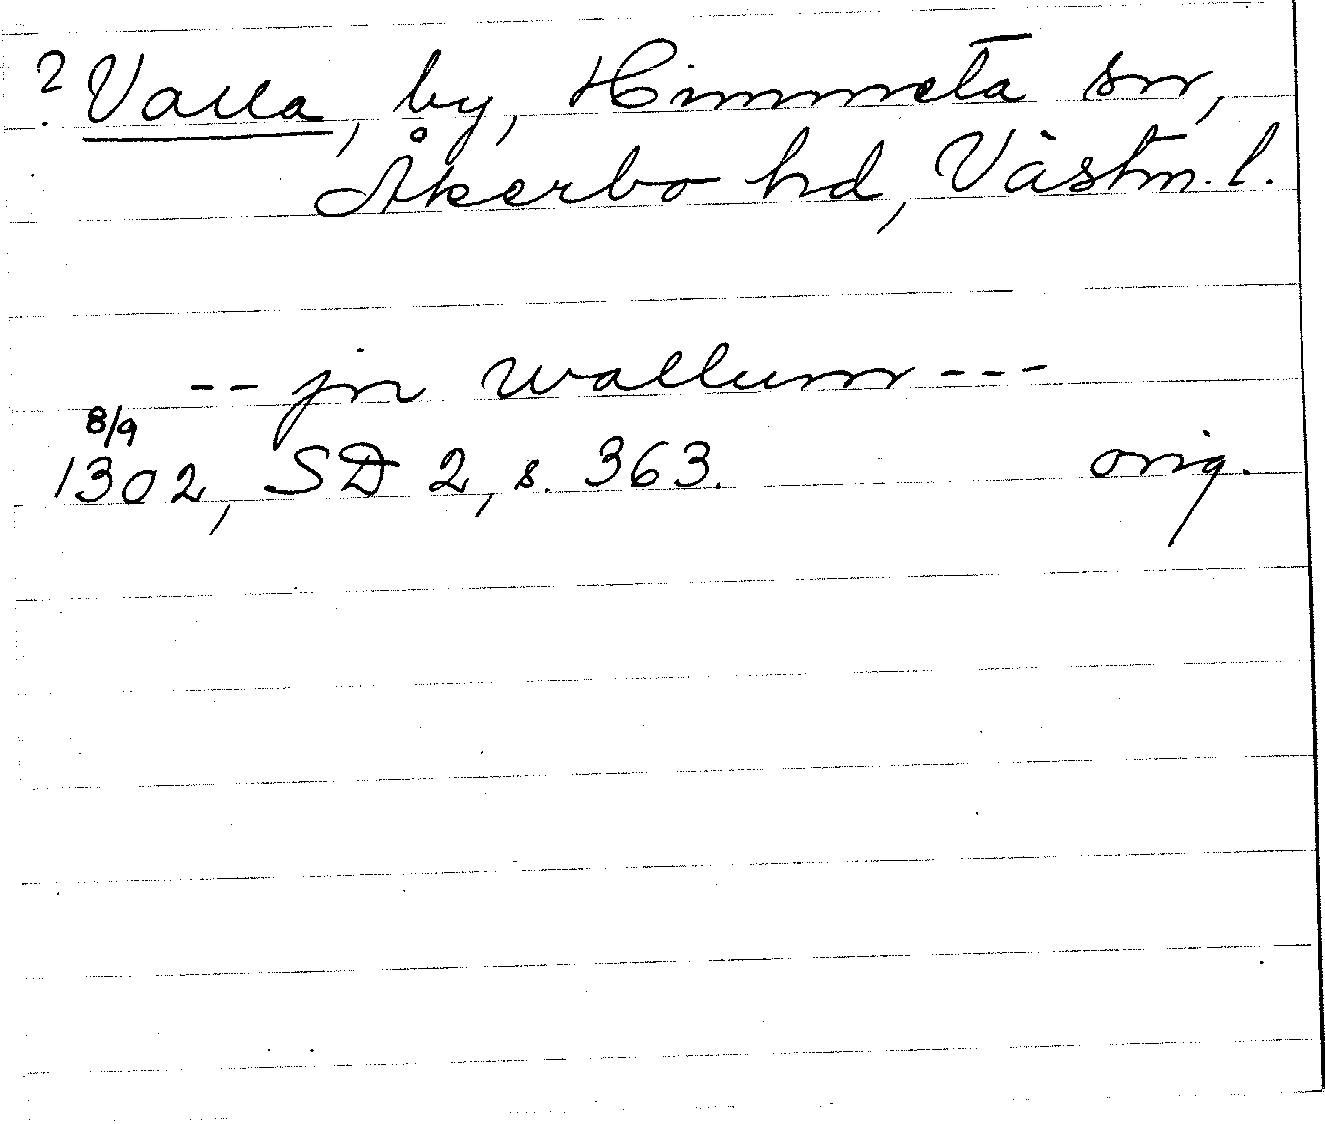 ? Valla, by, Himmeta sn,
Åkerbo hd, Västm. l.
-- jn wallum ---
8/9
1302, SD 2, s. 363. orig.